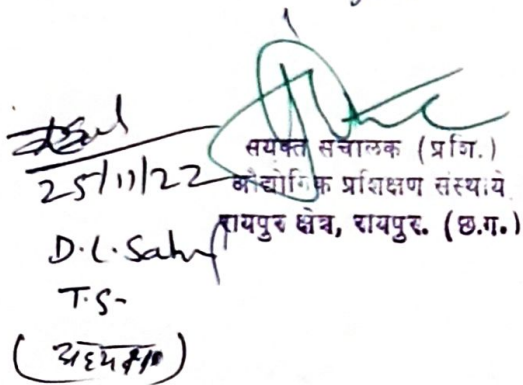 25/11/22
D.L. Sahu
T.S-
(अध्यक्ष)
सयंक्त संचालक (प्रशि.)
औद्योगिक प्रशिक्षण संस्थायें
रायपुर क्षेत्र, रायपुर. (छ.ग.)